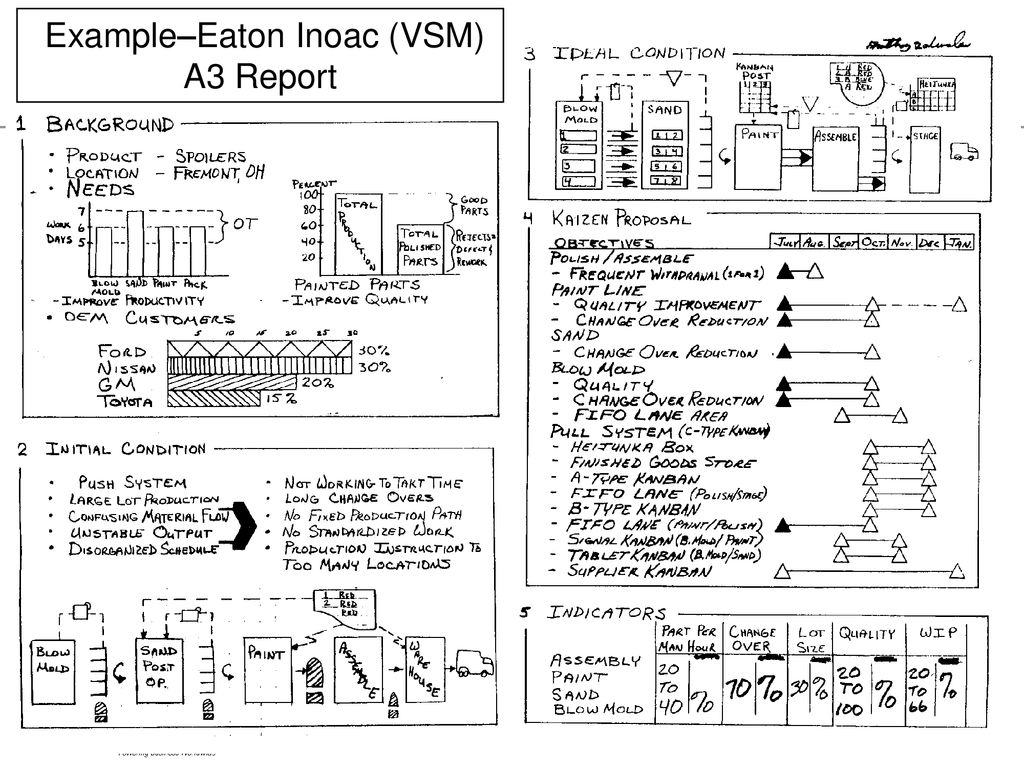 Example–Eaton Inoac (VSM)
A3 Report
1 BACKGROUND
• PRODUCT – SPOILERS
• LOCATION – FREMONT, OH
• NEEDS
WORK DAYS
7
6
5
OT
BLOW MOLD SAND PAINT PACK
– IMPROVE PRODUCTIVITY
PERCENT
100
80
60
40
20
TOTAL PRODUCTION
TOTAL POLISHED PARTS
GOOD PARTS
REJECTS= DEFECT & REWORK
PAINTED PARTS
– IMPROVE QUALITY
• OEM CUSTOMERS
5 10 15 20 25 30
FORD 30%
NISSAN 30%
GM 20%
TOYOTA 15%
2 INITIAL CONDITION
• PUSH SYSTEM
• LARGE LOT PRODUCTION
• CONFUSING MATERIAL FLOW
• UNSTABLE OUTPUT
• DISORGANIZED SCHEDULE
• NOT WORKING TO TAKT TIME
• LONG CHANGE OVERS
• NO FIXED PRODUCTION PATH
• NO STANDARDIZED WORK
• PRODUCTION INSTRUCTION TO
TOO MANY LOCATIONS
1 RED
2 RED
RED
BLOW MOLD
SAND POST OP.
PAINT
ASSEMBLE
WAREHOUSE
3 IDEAL CONDITION
KANBAN POST
1 2 3
1 A RED
2 B RED
3 B BLUE
A RED
HEIJUNKA
BLOW MOLD
1
2
3
4
SAND
1 2
3 4
5 6
7 8
PAINT
ASSEMBLE
STAGE
4 KAIZEN PROPOSAL
OBJECTIVES JULY AUG. SEPT OCT. NOV. DEC JAN.
POLISH/ASSEMBLE
– FREQUENT WITHDRAWAL (1 FOR 1)
PAINT LINE
– QUALITY IMPROVEMENT
– CHANGE OVER REDUCTION
SAND
– CHANGE OVER REDUCTION
BLOW MOLD
– QUALITY
– CHANGE OVER REDUCTION
– FIFO LANE AREA
PULL SYSTEM (C-TYPE KANBAN)
– HEIJUNKA BOX
– FINISHED GOODS STORE
– A-TYPE KANBAN
– FIFO LANE (POLISH/STAGE)
– B-TYPE KANBAN
– FIFO LANE (PAINT/POLISH)
– SIGNAL KANBAN (B.MOLD/PAINT)
– TABLET KANBAN (B.MOLD/SAND)
– SUPPLIER KANBAN
5 INDICATORS
PART PER MAN HOUR CHANGE OVER LOT SIZE QUALITY WIP
ASSEMBLY
PAINT
SAND
BLOW MOLD
20 TO 40 %
70 %
30 %
20 TO 100 %
20 TO 66 %